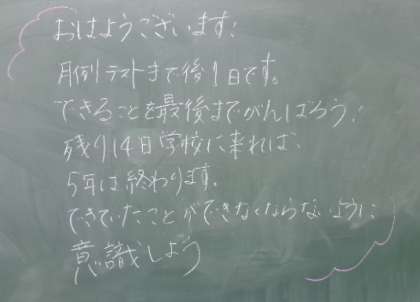 おはようございます!
月例テストまで後1日です。
できることを最後までがんばろう!
残り14日学校に来れば、
5年は終わります。
できていたことができなくならないように
意識しよう